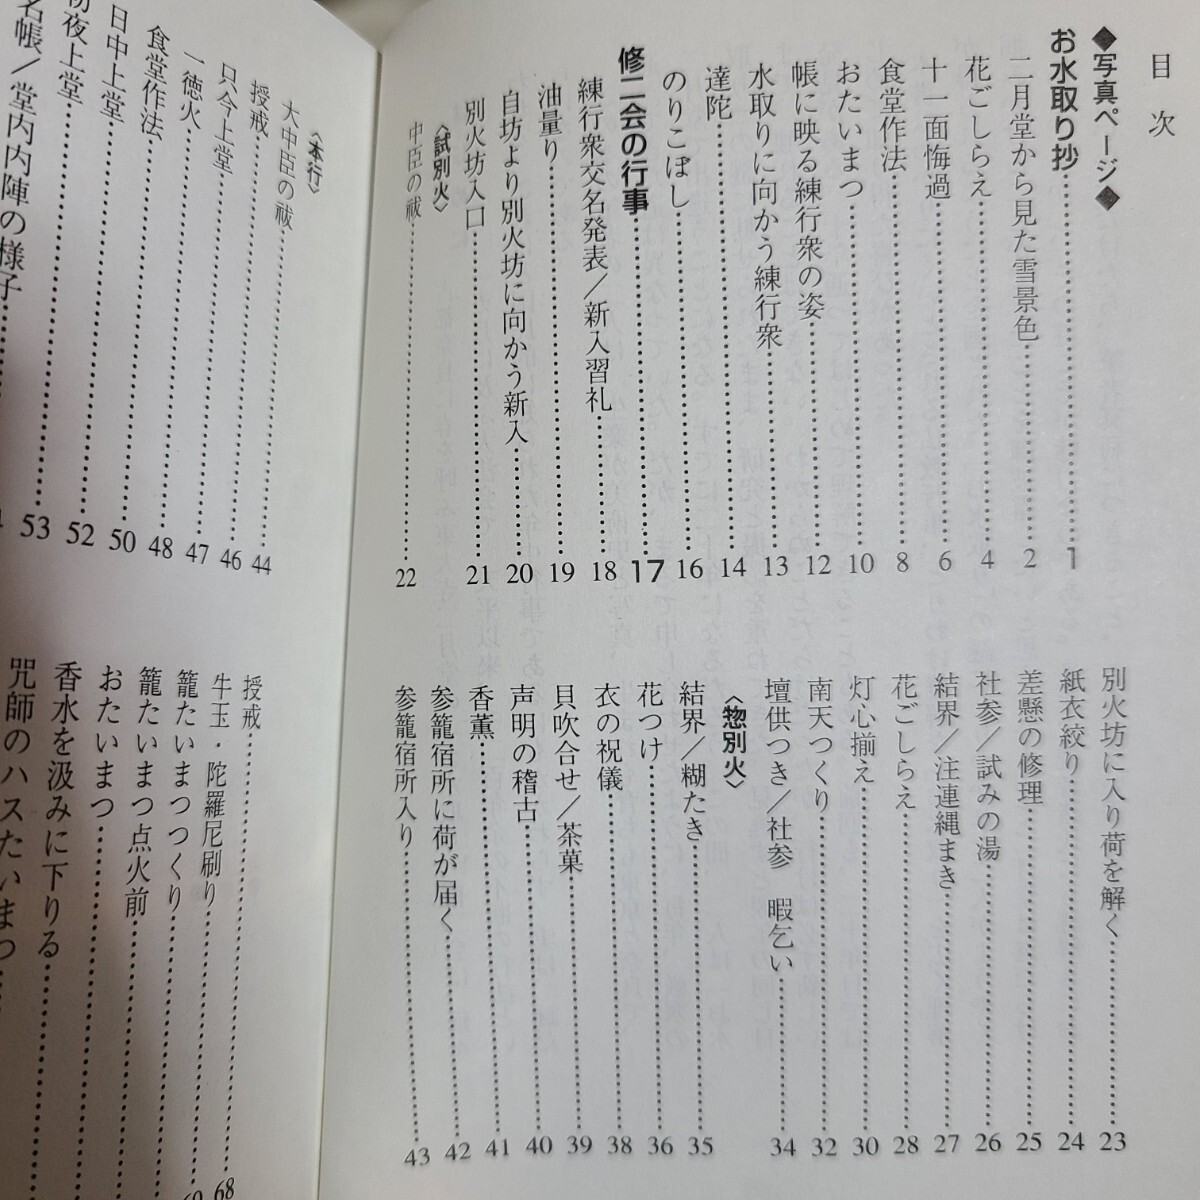 目次
◆写真ページ◆
お水取り抄 1
二月堂から見た雪景色 2
花ごしらえ 4
十一面悔過 6
食堂作法 8
おたいまつ 10
帳に映る練行衆の姿 12
水取りに向かう練行衆 13
達陀 14
のりこぼし 16
修二会の行事 17
練行衆交名発表/新入習礼 18
油量り 19
自坊より別火坊に向かう新入 20
別火坊入口 21
〈試別火〉
中臣の祓 22
別火坊に入り荷を解く 23
紙衣絞り 24
差懸の修理 25
社参/試みの湯 26
結界/注連縄まき 27
花ごしらえ 28
灯心揃え 30
南天つくり 32
壇供つき/社参 暇乞い 34
〈惣別火〉
結界/糊たき 35
花つけ 36
衣の祝儀 38
貝吹合せ/茶菓 39
声明の稽古 40
香薫 41
参籠宿所に荷が届く 42
参籠宿所入り 43
〈本行〉
大中臣の祓 44
授戒 46
只今上堂 47
一徳火 48
食堂作法 50
日中上堂 52
初夜上堂 53
名帳/堂内内陣の様子
授戒 68
牛玉・陀羅尼刷り
籠たいまつつくり
籠たいまつ点火前
おたいまつ
香水を汲みに下りる
咒師のハスたいまつ